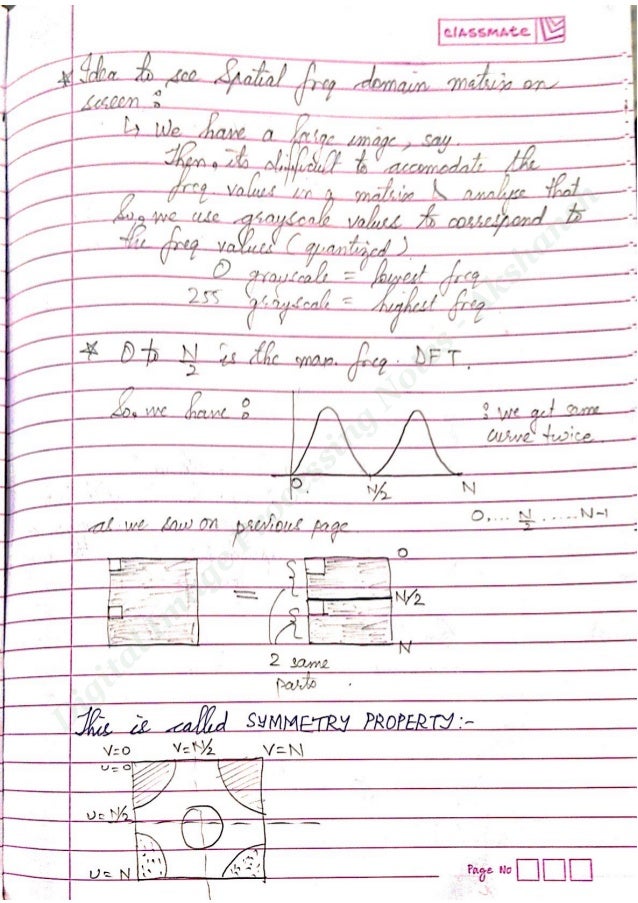 classmate
* Idea to see Spatial freq domain matrix on
screen :
↳ We have a large image, say.
Then, its difficult to accomodate the
freq. values in a matrix & analyse that
So, we use grayscale values to correspond to
the freq values (quantized).
0 grayscale = lowest freq
255 grayscale = highest freq
* 0 to N/2 is the max. freq. DFT.
So, we have :
: we get same
curve twice.
0 N/2 N
0, ... N/2 ..... N-1
as we saw on previous page
0
=
N/2
N
2 same
parts.
This is called SYMMETRY PROPERTY:-
V=0 V=N/2 V=N
u=0
u=N/2
u=N
Page No
Digital Image Processing Notes